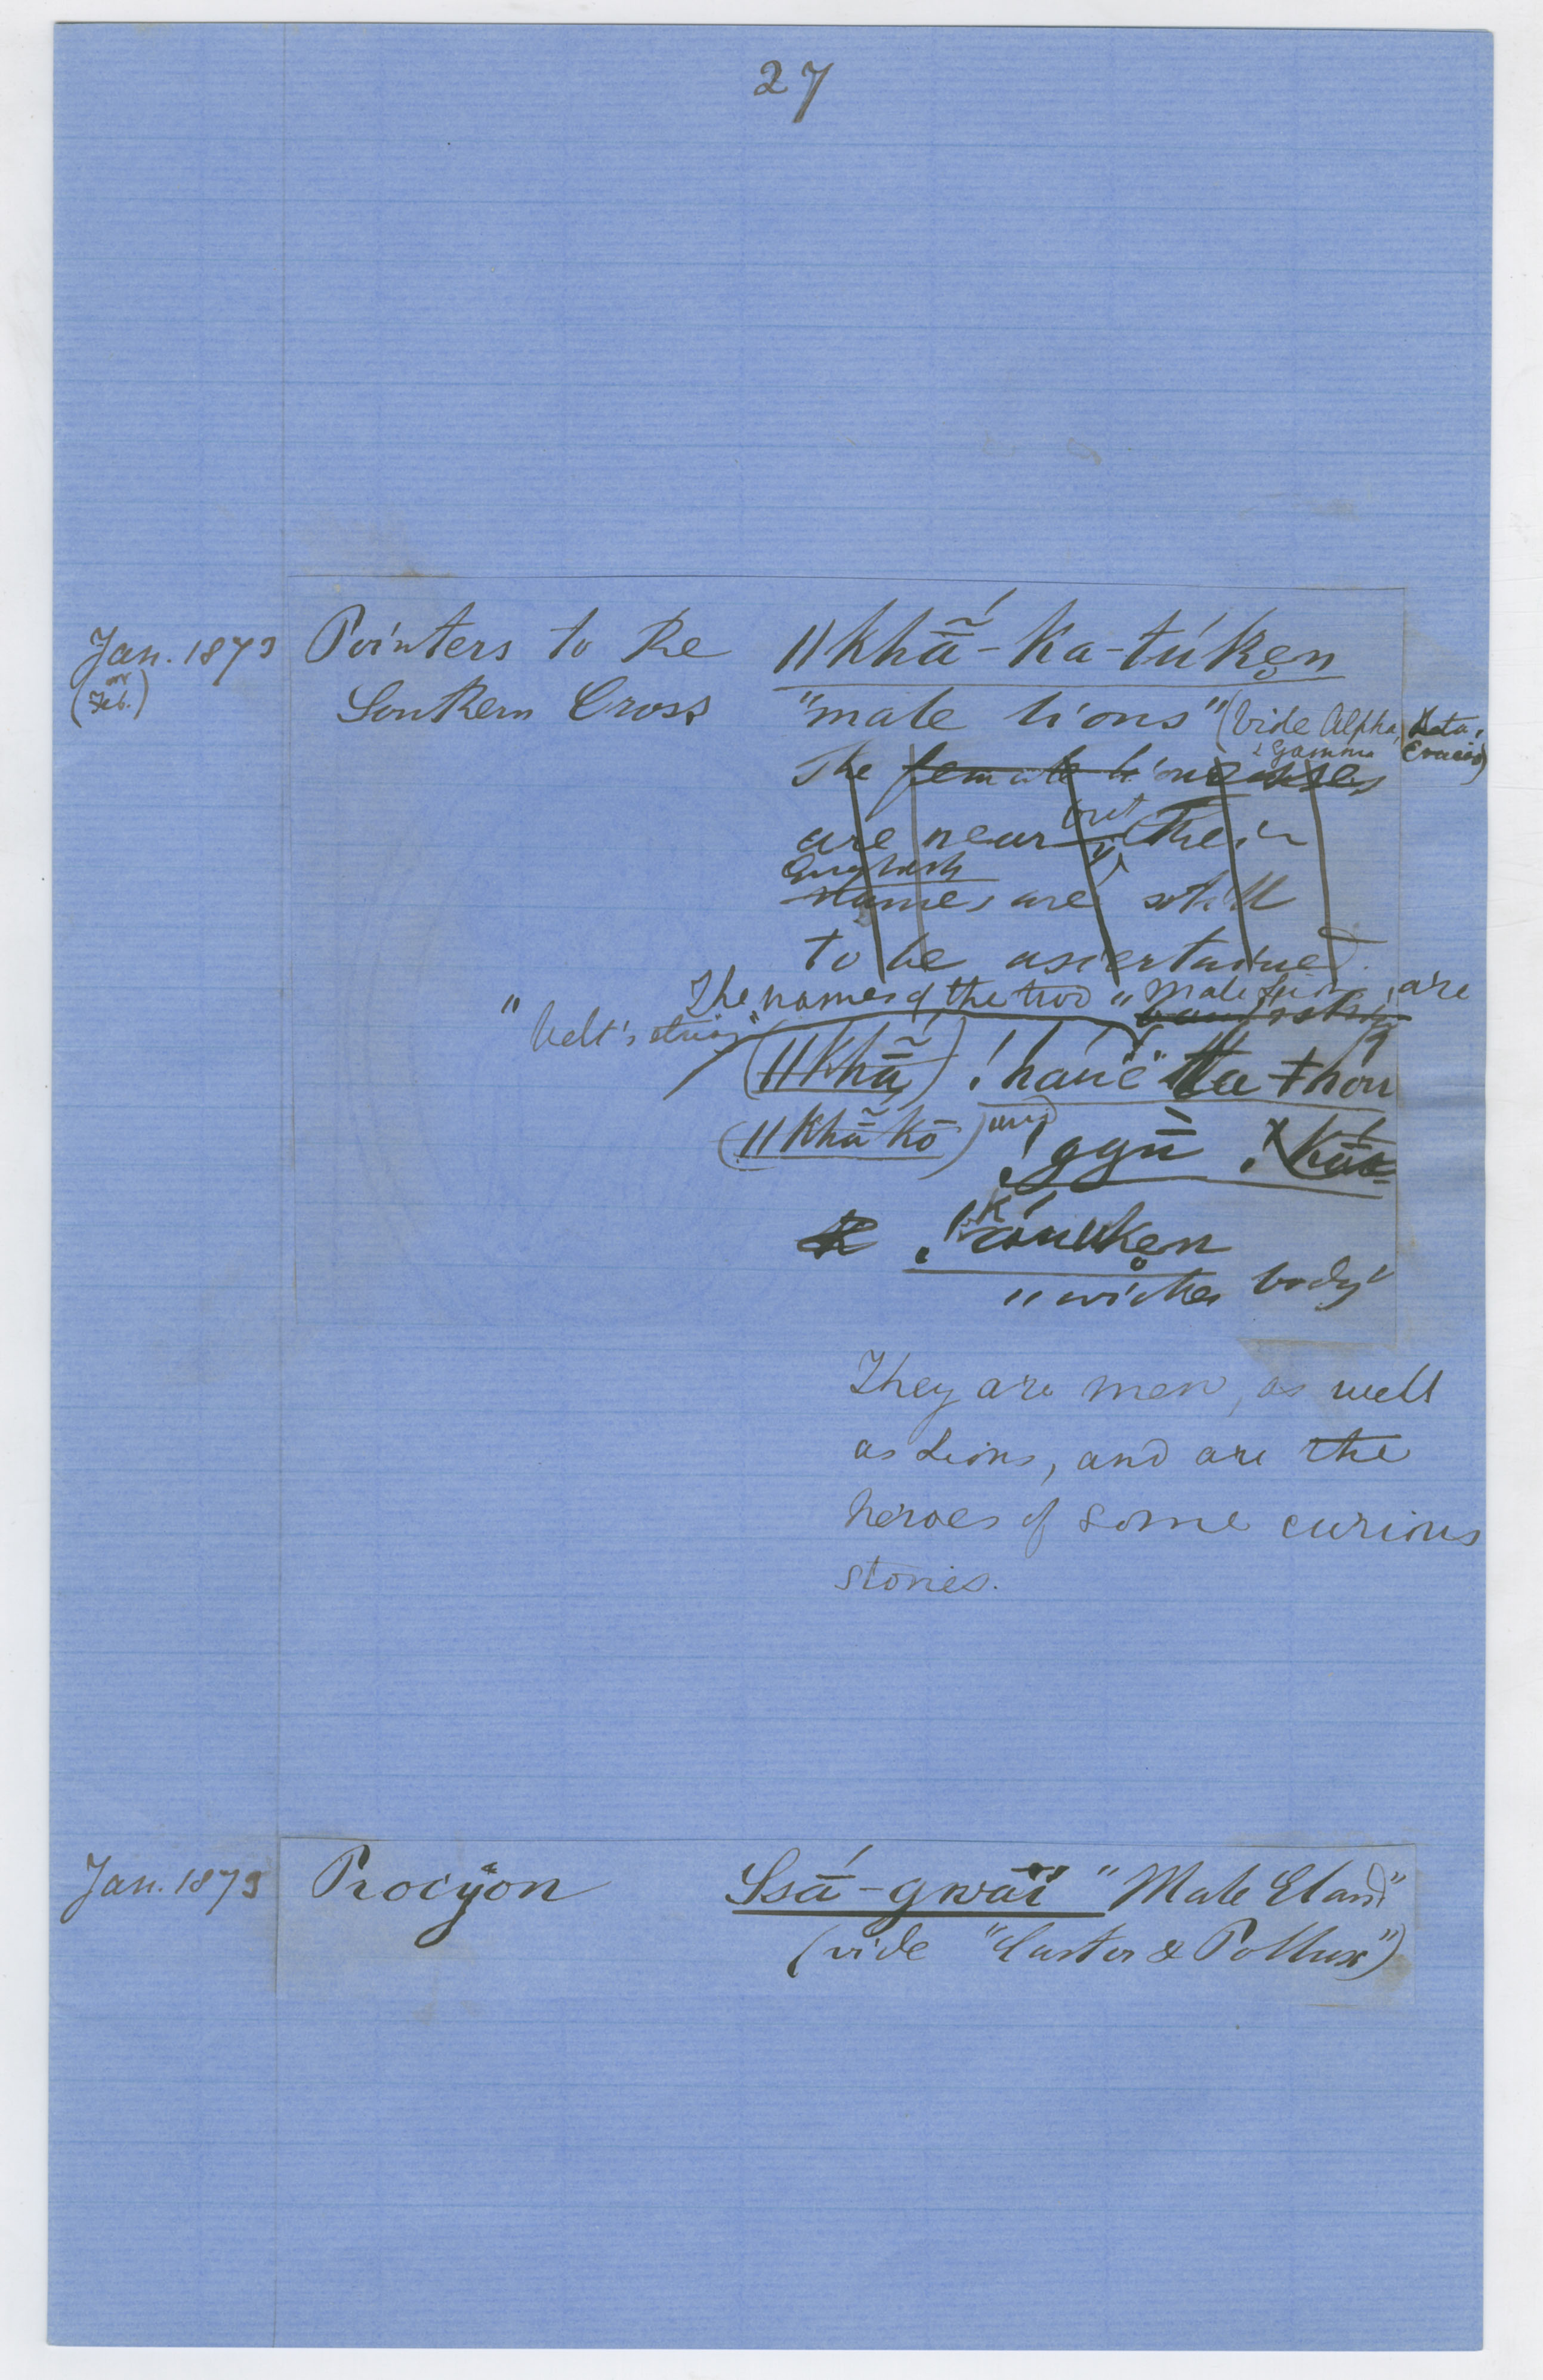 27
Jan. 1873 Pointers to the ǁkhā̃́-ka-túkẹn
(or Feb.) Southern Cross "male lions" (vide Alpha, Beta,
& Gamma Crucis)
The female lionesses
are near, but their
English names are still
to be ascertained.
The names of the two "Male Lions" are
"belt's string"
(ǁkhā̃́) !haué ǂhou
(ǁkhā̃ kō) and
!gyū̀
"wicker body"
They are men, as well
as Lions, and are the
heroes of some curious
stories.
Jan. 1873 Procyon Ssā́-gwāï "Male Eland"
(vide "Castor & Pollux")